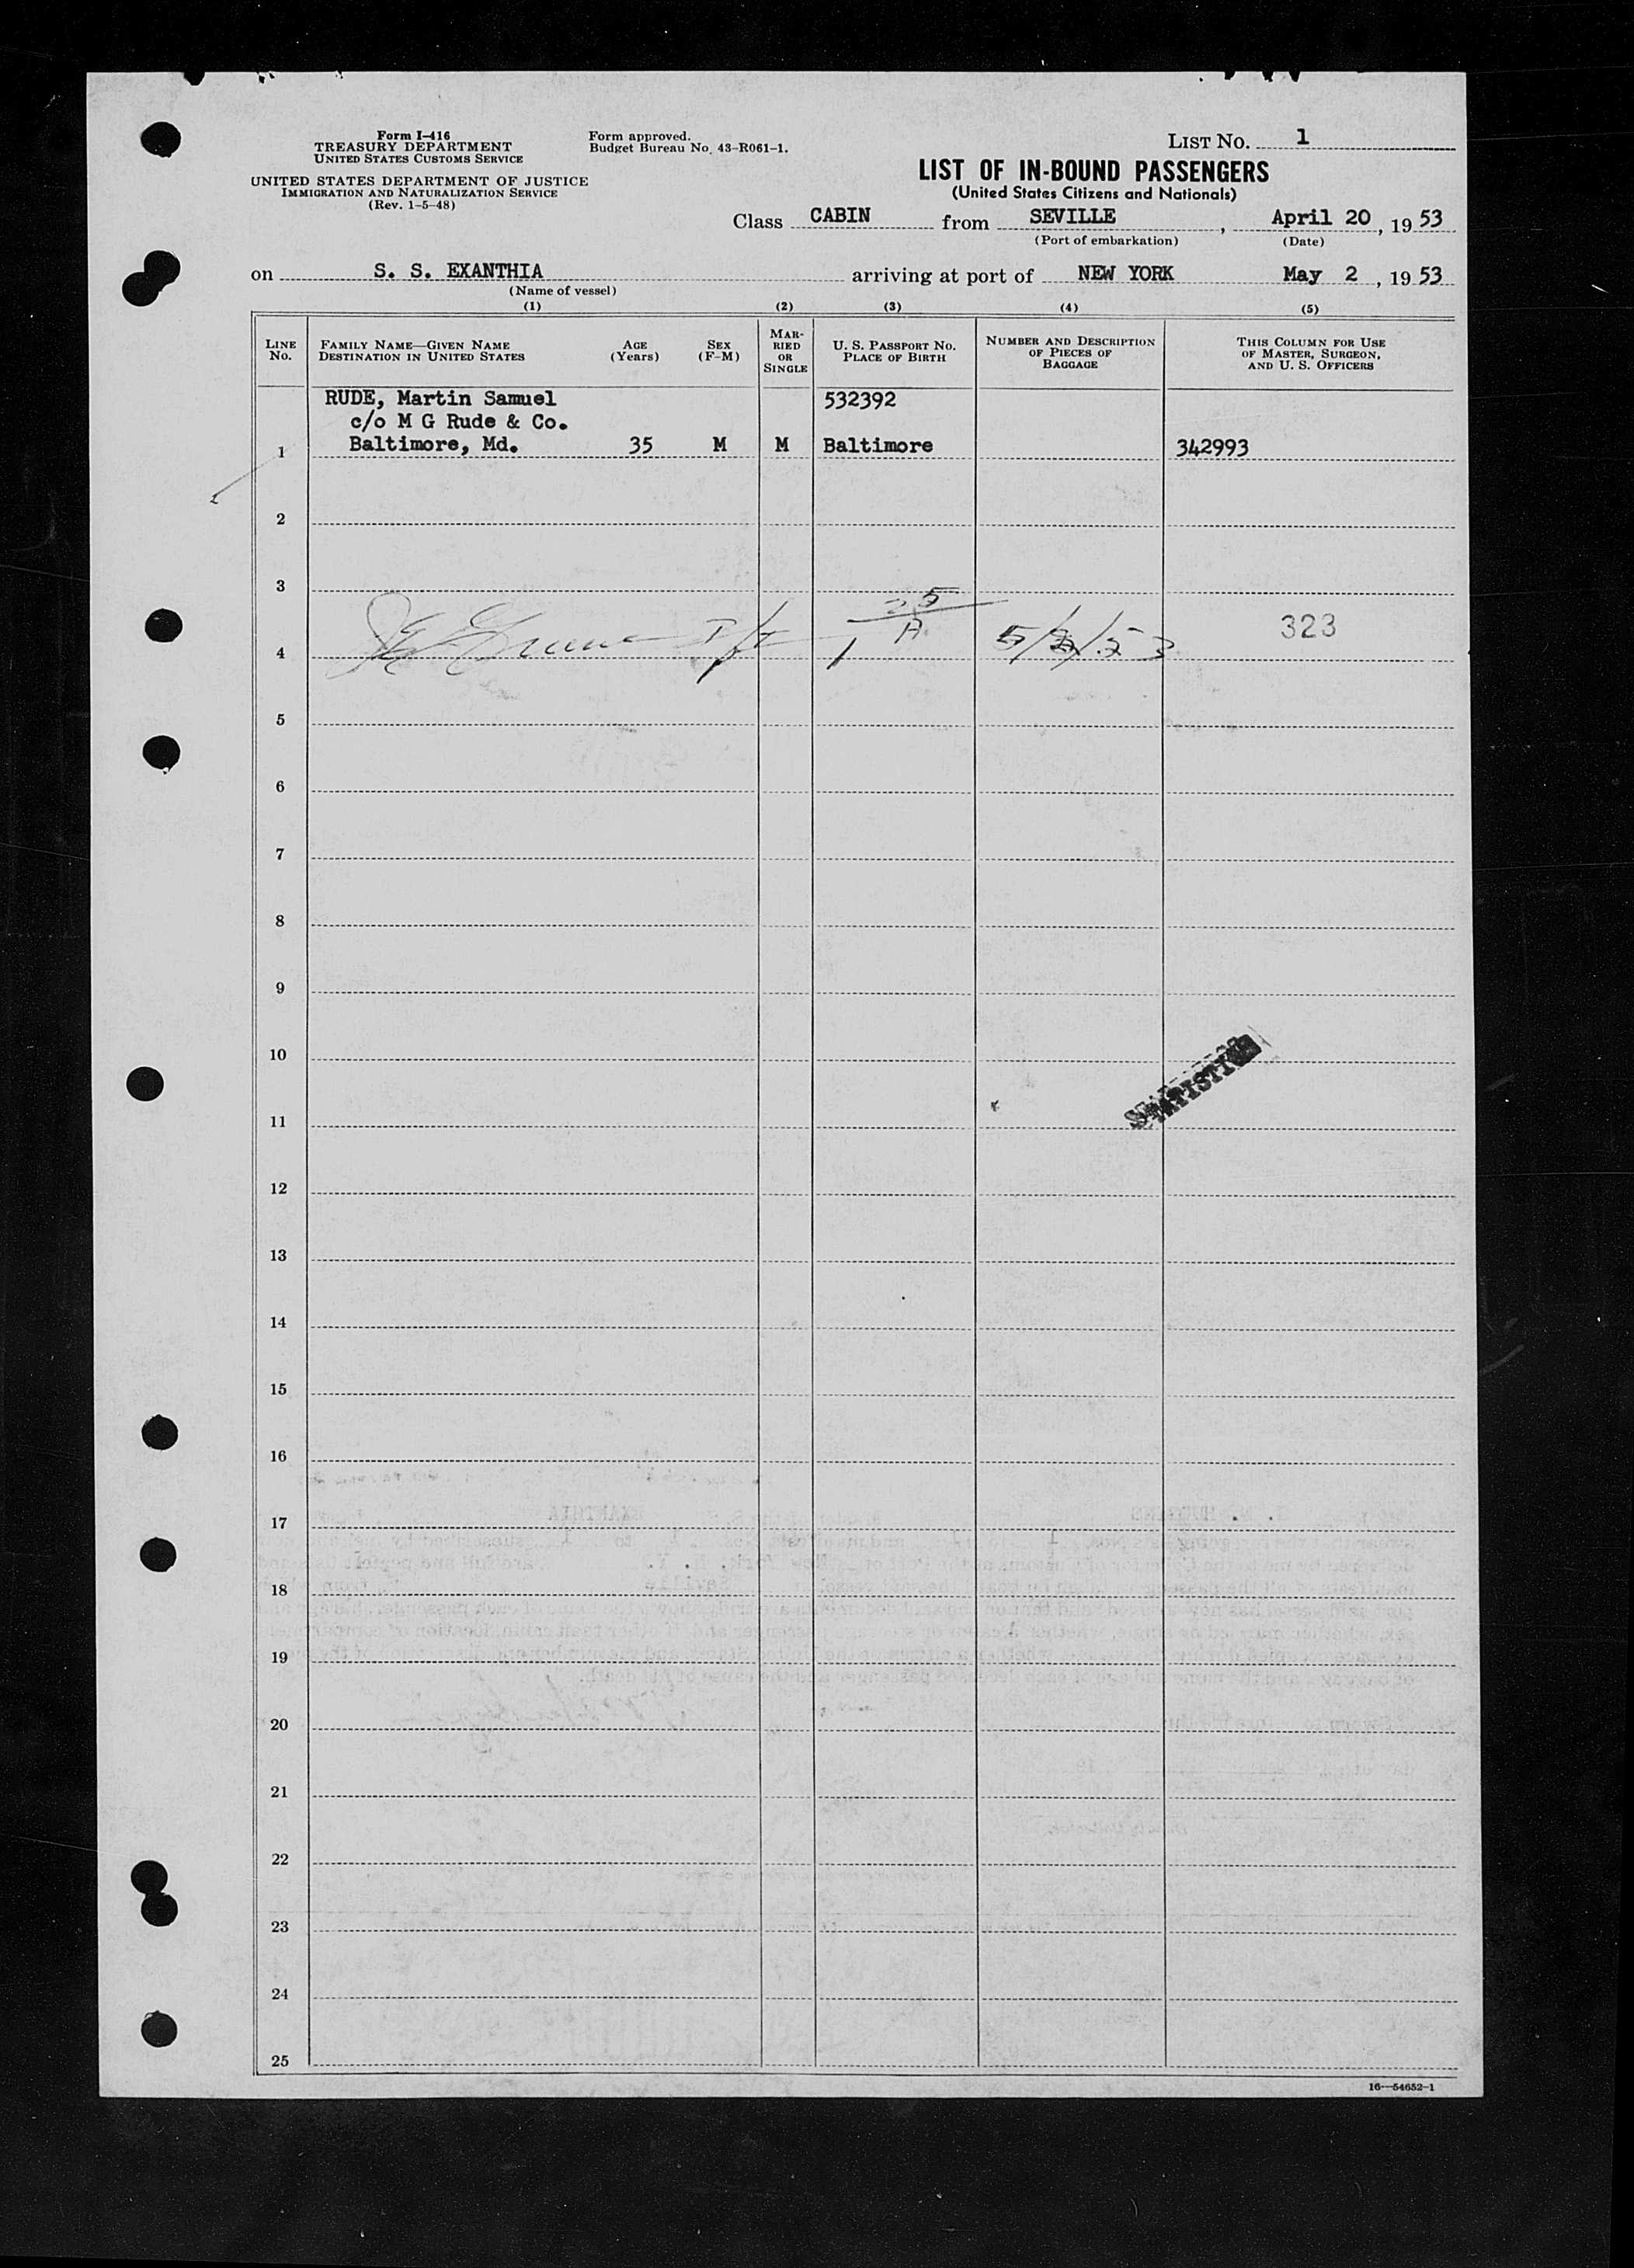 Form I-416
TREASURY DEPARTMENT
UNITED STATES CUSTOMS SERVICE
UNITED STATES DEPARTMENT OF JUSTICE
IMMIGRATION AND NATURALIZATION SERVICE
(Rev. 1-5-48)
Form approved.
Budget Bureau No. 43-R061-1.
LIST No. 1
LIST OF IN-BOUND PASSENGERS
(United States Citizens and Nationals)
Class CABIN from SEVILLE, April 20, 1953
(Port of embarkation) (Date)
on S. S. EXANTHIA arriving at port of NEW YORK May 2, 1953
(Name of vessel)
(1) (2) (3) (4) (5)
LINE No.
FAMILY NAME—GIVEN NAME
DESTINATION IN UNITED STATES
AGE (Years)
SEX (F-M)
MARRIED OR SINGLE
U. S. PASSPORT No.
PLACE OF BIRTH
NUMBER AND DESCRIPTION OF PIECES OF BAGGAGE
THIS COLUMN FOR USE OF MASTER, SURGEON, AND U. S. OFFICERS
RUDE, Martin Samuel 532392
c/o M G Rude & Co.
1 Baltimore, Md. 35 M M Baltimore 342993
2
3
4 5/2/53 323
5
6
7
8
9
10
11
12
13
14
15
16
17
18
19
20
21
22
23
24
25
16—54652-1